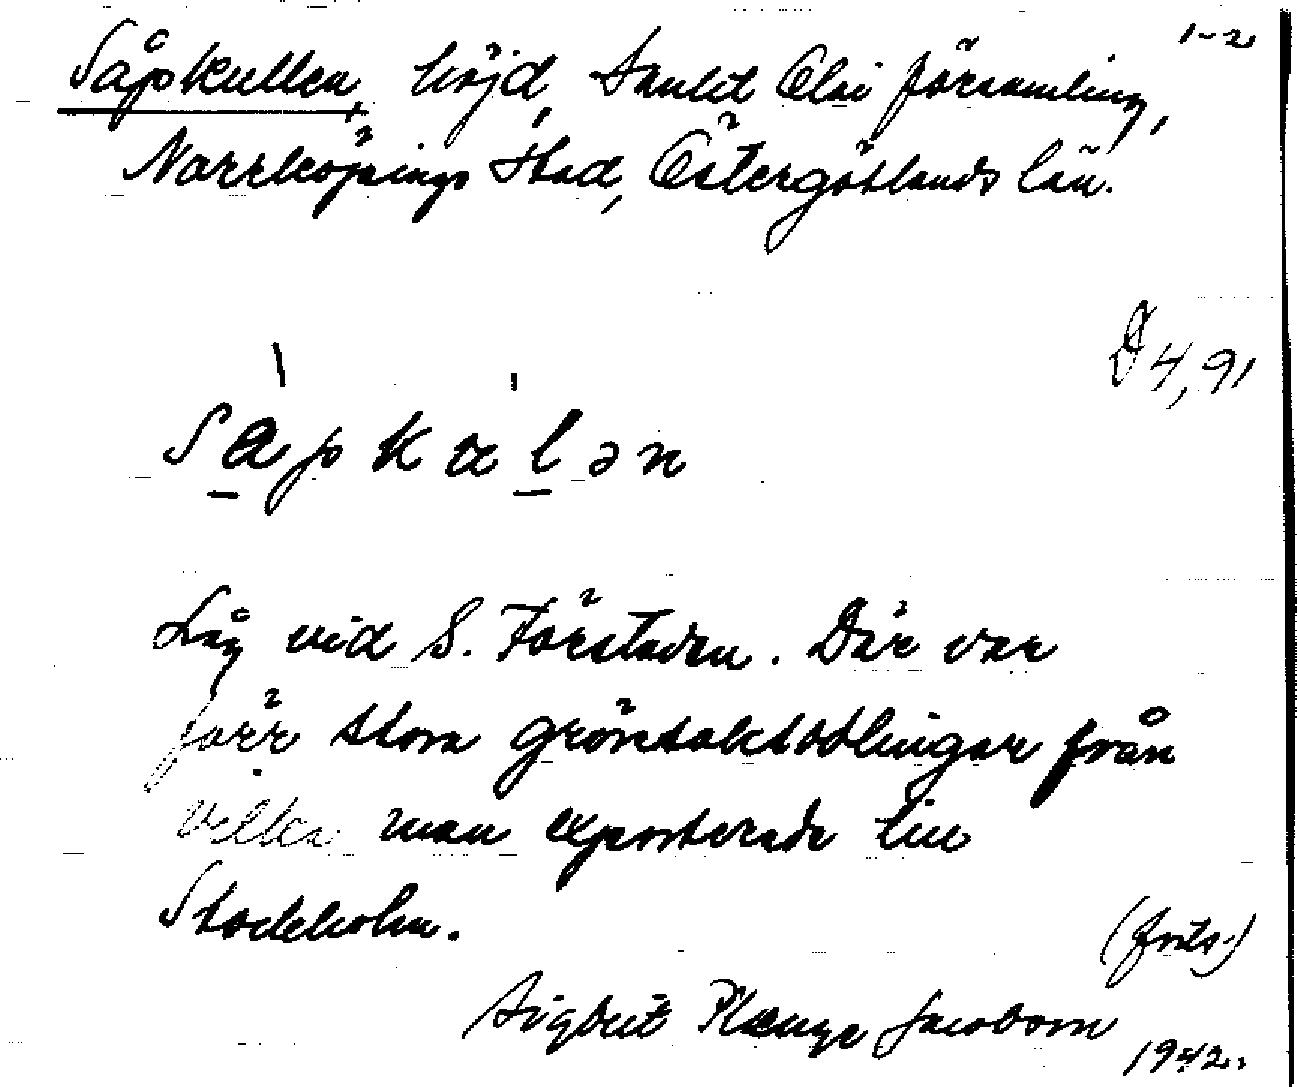 Såpkullen, höjd, Sankt Olai församling, 1-2
Norrköpings stad, Östergötlands län.
D 4,91
såpkɷlən
Låg vid S. Förstaden. Där var
förr stora grönsaksodlingar från
vilka man exporterade till
Stockholm.
(forts.)
Sigbrit Plænge Jacobson
1942.